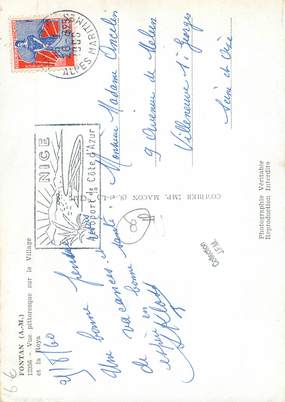 FONTAN (A.-M.)
12256 - Vue pittoresque sur le Village
et la Roya
21/8/60
Une bonne pensée
de vacances et
espère en bonne santé
NICE
Aéroport de la Côte d'Azur
ALPES MARITIMES
COMBIER IMP. MACON (S.-et-L.)
8
Monsieur Madame Ancelin
9 Avenue de Melun
Villeneuve St Georges
Seine et Oise
Collection
Photographie Véritable
Reproduction Interdite
6 €